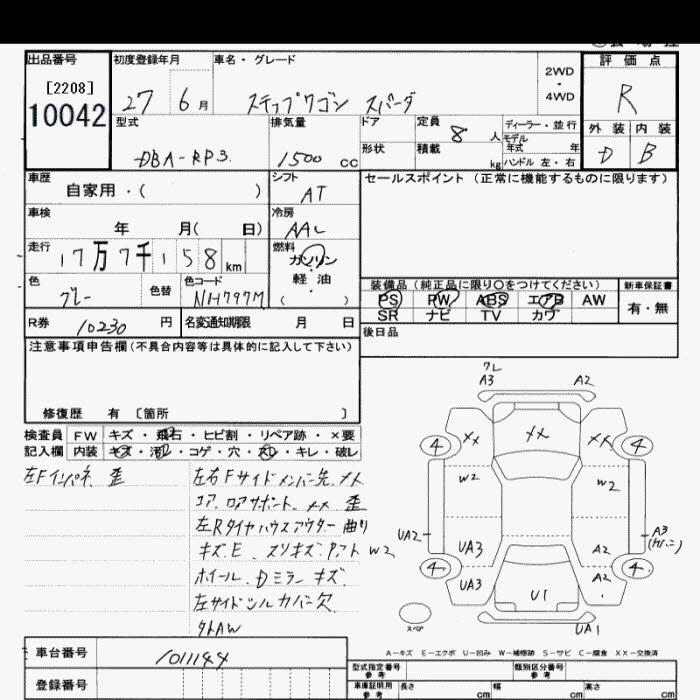 出品番号 初度登録年月 車名・グレード 評価点
[2208]
10042
27 6月 ステップワゴン スパーダ
2WD
・
4WD
R
型式 排気量 ドア 定員 8人 ディーラー・並行
DBA-RP3 1500 cc 形状 積載 kg モデル年式 年
ハンドル 左・右
外装 内装
D B
車歴 自家用・( ) シフト AT セールスポイント(正常に機能するものに限ります)
車検 年 月( 日) 冷房 AAC
走行 17万7千158km 燃料 ガソリン
軽油
( )
色 グレー 色替 色コード NH797M
装備品(純正品に限り○をつけてください) 新車保証書
PS PW ABS エアB AW 有・無
SR ナビ TV カワ
R券 10230円 名変通知期限 月 日 後日品
注意事項申告欄(不具合内容等は具体的に記入して下さい)
修復歴 有 〔箇所 〕
検査員 FW キズ・飛石・ヒビ割・リペア跡・×要
記入欄 内装 キズ・汚レ・コゲ・穴・欠・キレ・破レ
左Fインパネ 歪
左右Fサイドメンバー先 メト
コア、ロアサポート ×× 歪
左Rタイヤハウスアウター曲り
キズE、スリキズ、アト
ホイール、Dミラー キズ
左サイドシルカバー欠
外AW
フレ
A3 A2
×× ×× ××
4 4
W2 W2
UA2 A3
W2 UA3 A2
4 4
UA3 A2
U1
スペア
UA1
A-キズ E-エクボ U-凹み W-補修跡 S-サビ C-腐食 XX-交換済
車台番号 1011144
登録番号
型式指定番号 参考 類別区分番号 参考
車庫証明用 参考 長さ cm 幅 cm 高さ cm